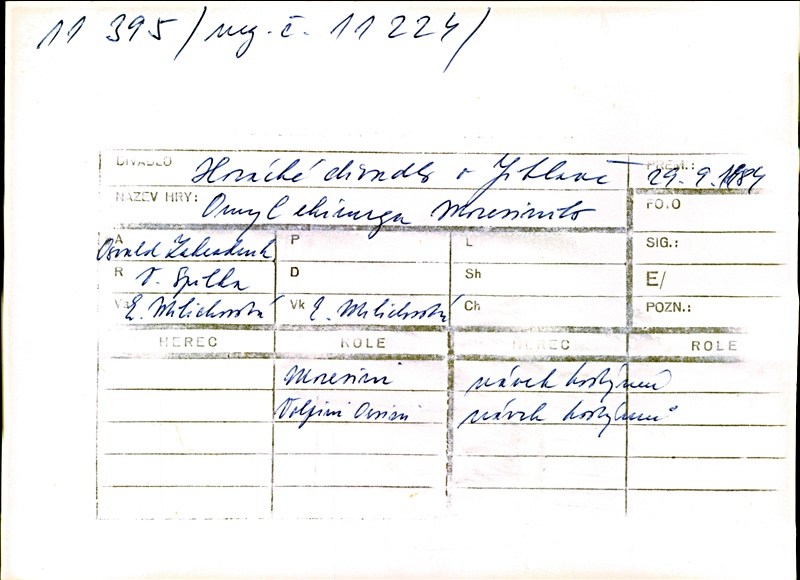 11 395 / neg. č. 11 224 /
DIVADLO Horácké divadlo v Jihlavě PREM.: 29. 9. 1984
NÁZEV HRY: Omyl chirurga Moresiniho FO.O
A Osvald Zahradník P L SIG.:
R V. Spilka D Sh E/
Vs E. Milichovská Vk E. Milichovská Ch POZN.:
HEREC ROLE HEREC ROLE
Moresini návrh kostýmů
Volpini Orsini návrh kostýmů